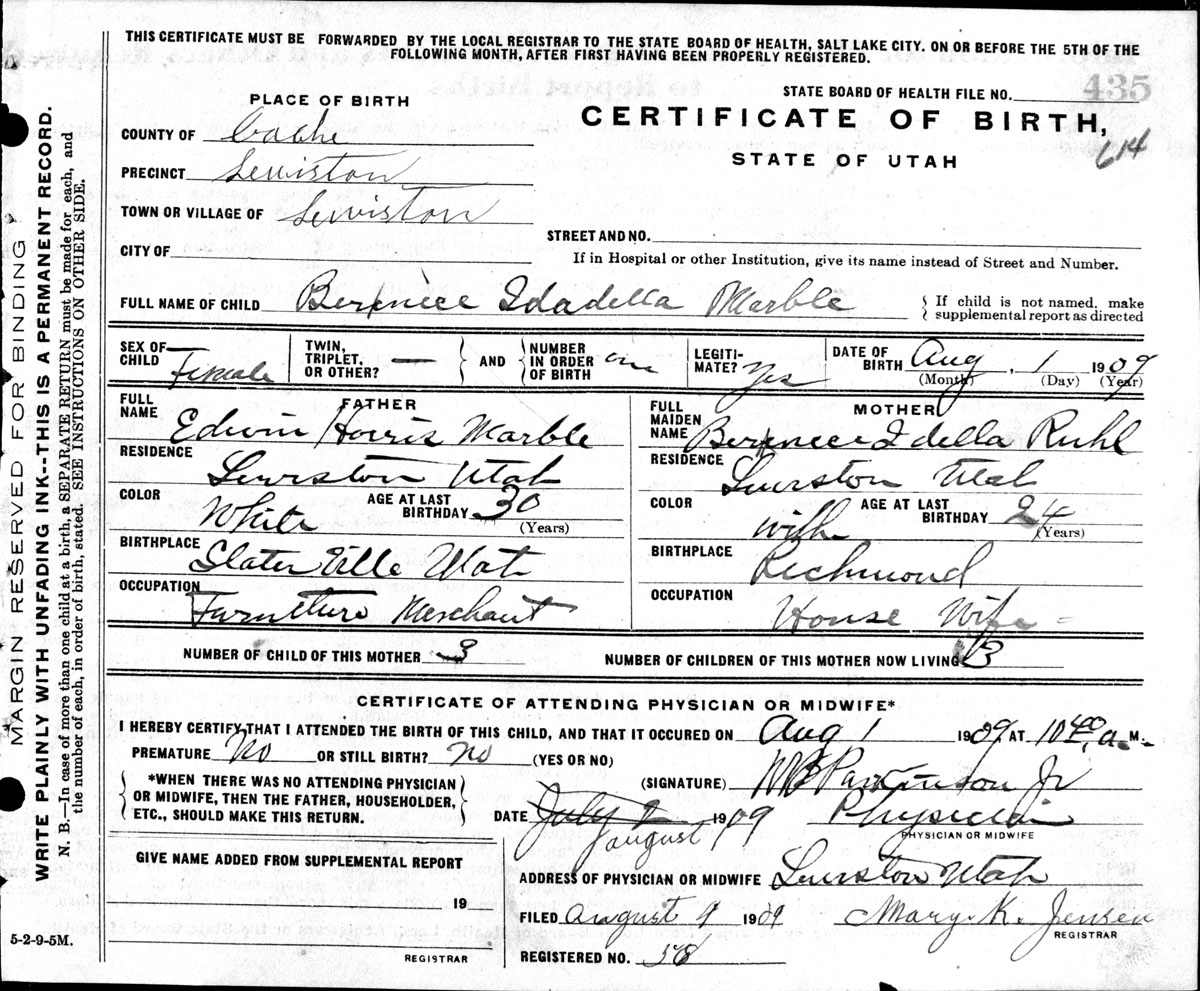 THIS CERTIFICATE MUST BE FORWARDED BY THE LOCAL REGISTRAR TO THE STATE BOARD OF HEALTH, SALT LAKE CITY, ON OR BEFORE THE 5TH OF THE
FOLLOWING MONTH, AFTER FIRST HAVING BEEN PROPERLY REGISTERED.
435
STATE BOARD OF HEALTH FILE NO.
PLACE OF BIRTH
CERTIFICATE OF BIRTH,
STATE OF UTAH
614
COUNTY OF Cache
PRECINCT Lewiston
TOWN OR VILLAGE OF Lewiston
STREET AND NO.
CITY OF
If in Hospital or other Institution, give its name instead of Street and Number.
FULL NAME OF CHILD Berenece Idadella Marble
{ If child is not named, make
supplemental report as directed
SEX OF CHILD Female
TWIN, TRIPLET, OR OTHER? —
AND
NUMBER IN ORDER OF BIRTH
LEGITIMATE? Yes
DATE OF BIRTH Aug, 1 1909
(Month) (Day) (Year)
FATHER
FULL NAME Edwin Horris Marble
RESIDENCE Lewiston Utah
COLOR White
AGE AT LAST BIRTHDAY 30
(Years)
BIRTHPLACE Slaterville Utah
OCCUPATION Furniture Merchant
MOTHER
FULL MAIDEN NAME Berenece Idella Ruhl
RESIDENCE Lewiston Utah
COLOR
AGE AT LAST BIRTHDAY 24
(Years)
BIRTHPLACE Richmond
OCCUPATION House Wife
NUMBER OF CHILD OF THIS MOTHER 3
NUMBER OF CHILDREN OF THIS MOTHER NOW LIVING 3
CERTIFICATE OF ATTENDING PHYSICIAN OR MIDWIFE*
I HEREBY CERTIFY THAT I ATTENDED THE BIRTH OF THIS CHILD, AND THAT IT OCCURED ON Aug 1 1909, AT 10 40 a. M.
PREMATURE No OR STILL BIRTH? No (YES OR NO)
*WHEN THERE WAS NO ATTENDING PHYSICIAN
OR MIDWIFE, THEN THE FATHER, HOUSEHOLDER,
ETC., SHOULD MAKE THIS RETURN.
(SIGNATURE) WB Parkinson Jr
DATE July 1909 Physician
August
PHYSICIAN OR MIDWIFE
GIVE NAME ADDED FROM SUPPLEMENTAL REPORT
19
REGISTRAR
ADDRESS OF PHYSICIAN OR MIDWIFE Lewiston Utah
FILED August 9 1909 Mary K. Jensen
REGISTRAR
REGISTERED NO. 58
5-2-9-5M.
MARGIN RESERVED FOR BINDING
WRITE PLAINLY WITH UNFADING INK---THIS IS A PERMANENT RECORD.
N. B.—In case of more than one child at a birth, a SEPARATE RETURN must be made for each, and
the number of each, in order of birth, stated. SEE INSTRUCTIONS ON OTHER SIDE.